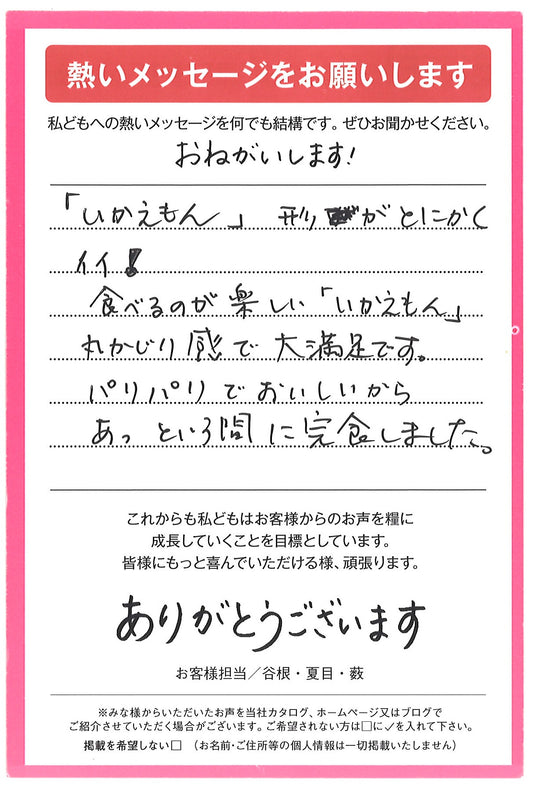 熱いメッセージをお願いします
私どもへの熱いメッセージを何でも結構です。ぜひお聞かせください。
おねがいします!
「いかえもん」 形がとにかく
イイ!
食べるのが楽しい「いかえもん」
丸かじり感で大満足です。
パリパリでおいしいから
あっという間に完食しました。
これからも私どもはお客様からのお声を糧に
成長していくことを目標としています。
皆様にもっと喜んでいただける様、頑張ります。
ありがとうございます
お客様担当／谷根・夏目・薮
※みな様からいただいたお声を当社カタログ、ホームページ又はブログで
ご紹介させていただく場合がございます。ご希望されない方は□に✓を入れて下さい。
掲載を希望しない□ （お名前・ご住所等の個人情報は一切掲載いたしません）